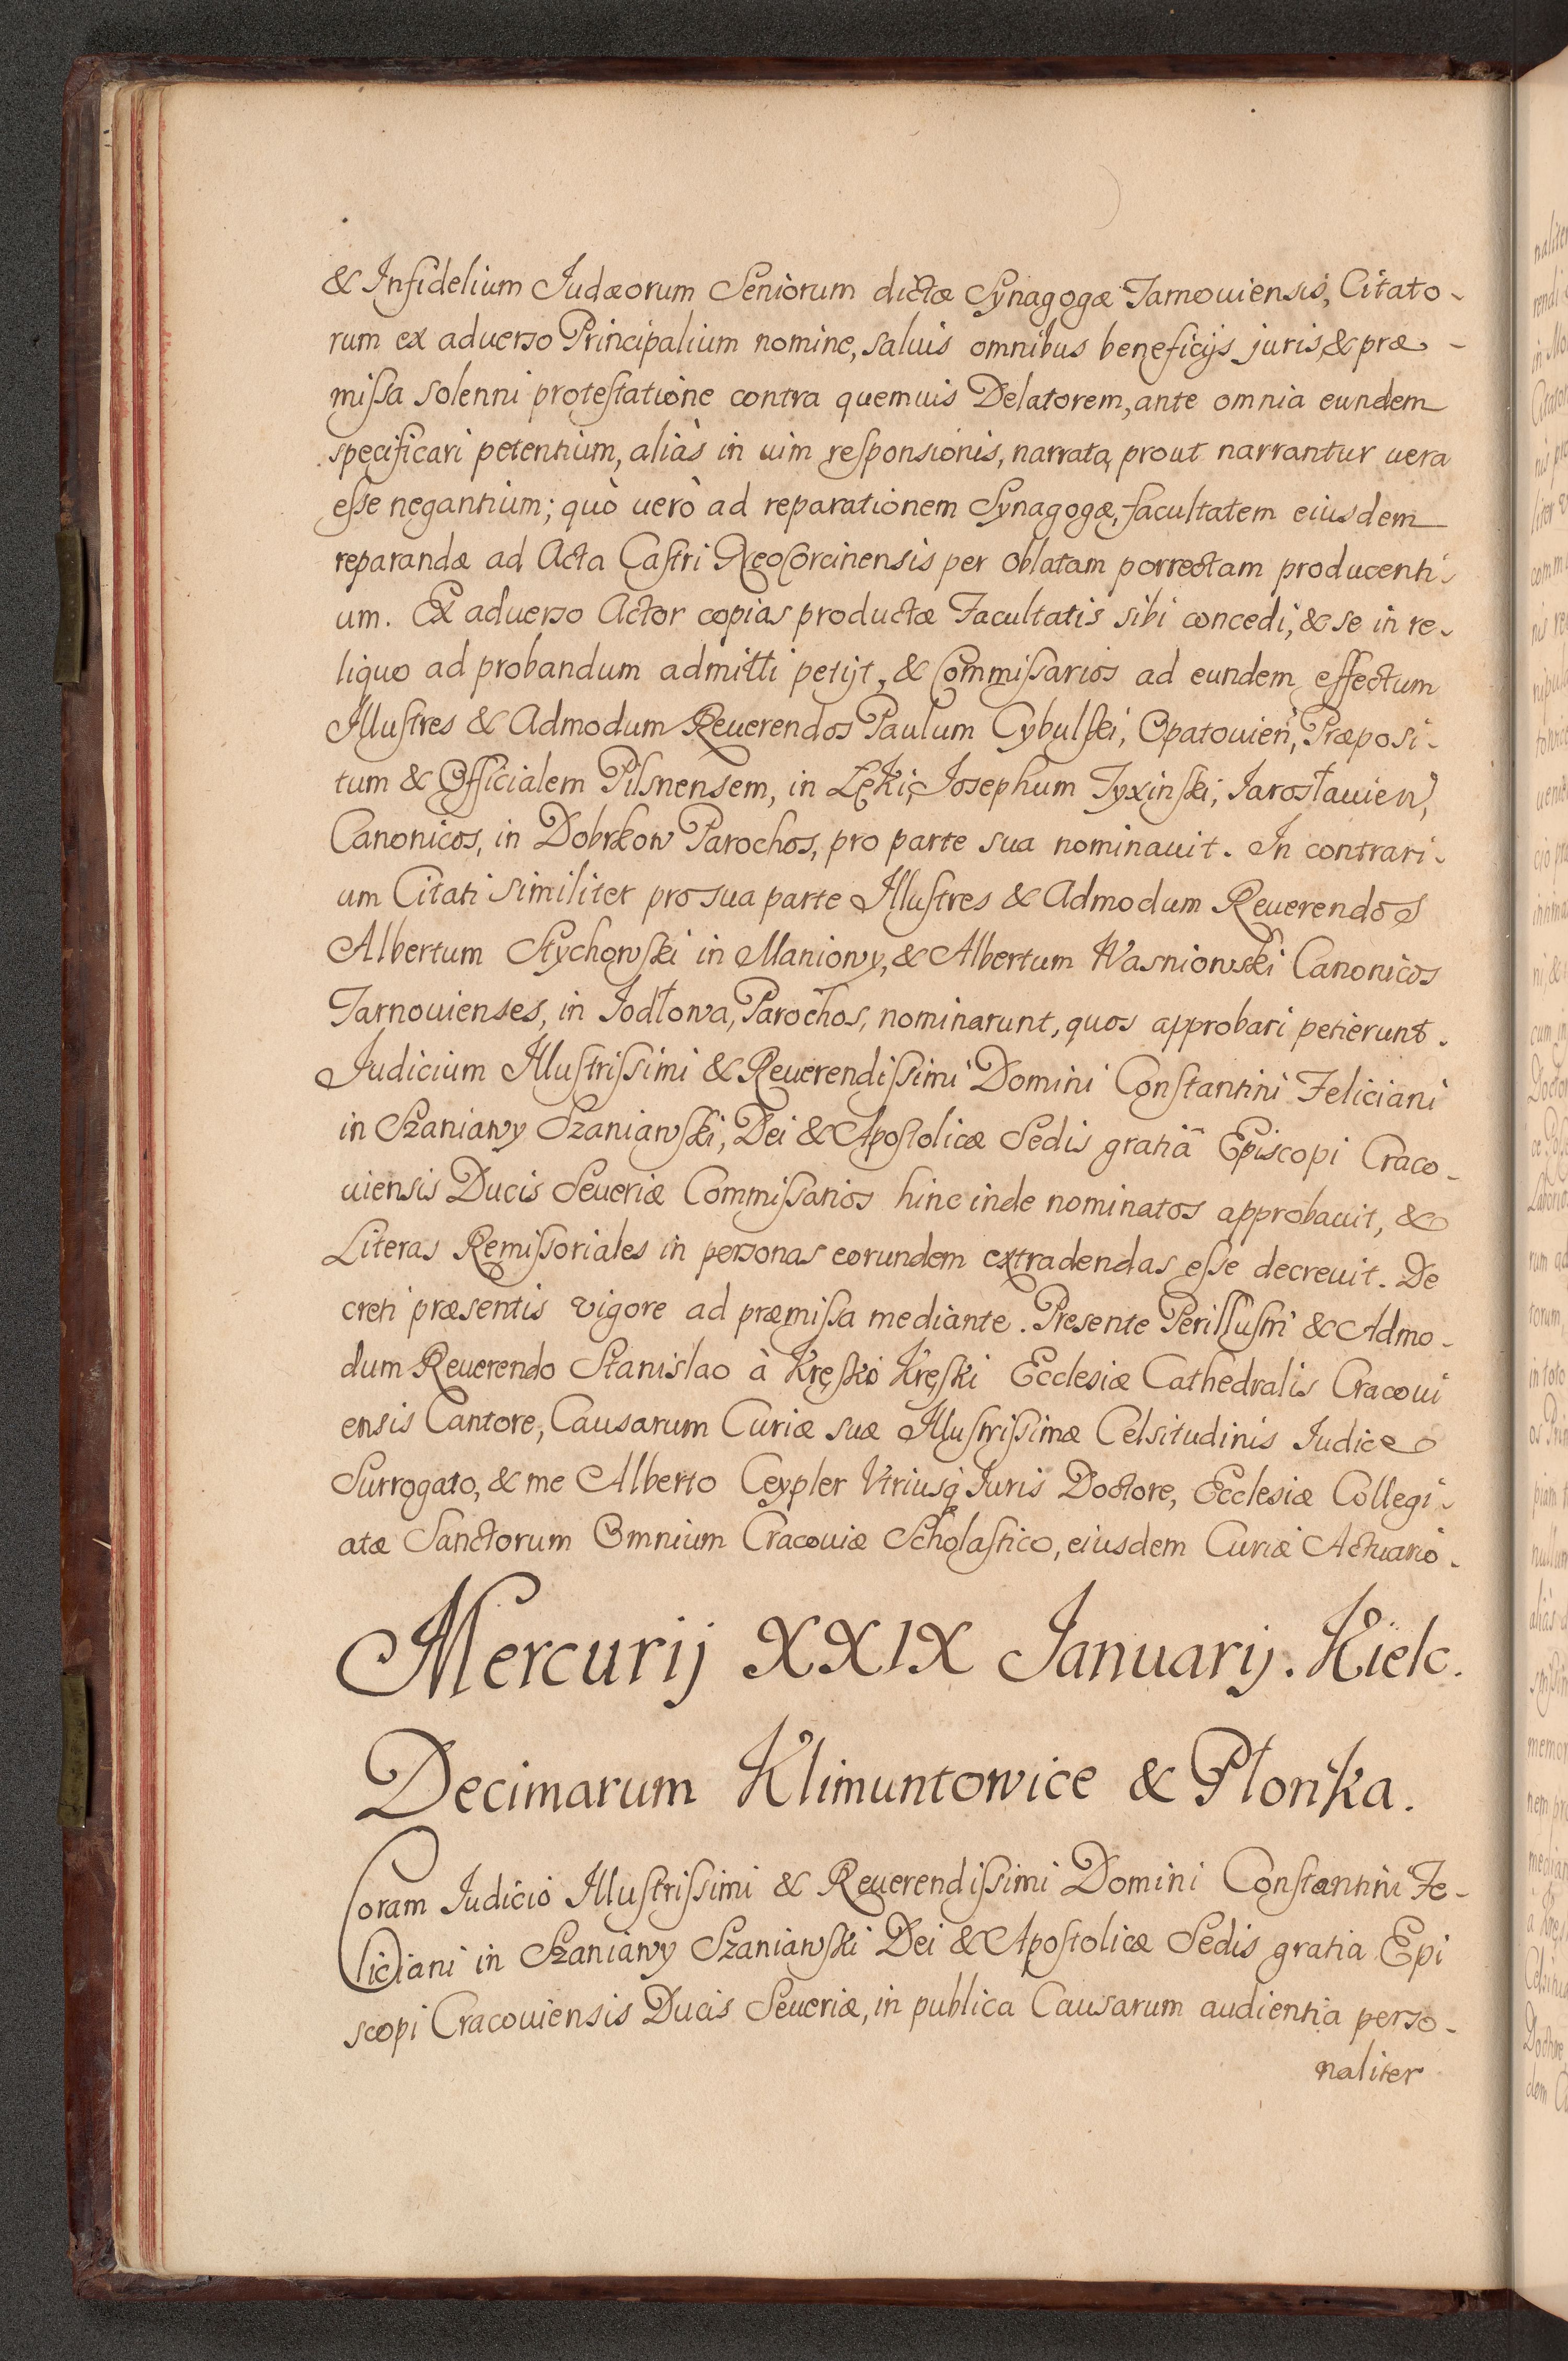 & Infidelium Judæorum Seniorum dictæ Synagogæ Tarnouiensis, Citato-
rum ex aduerso Principalium nomine, saluis omnibus beneficijs juris, & præ-
missa solenni protestatione contra quemuis Delatorem, ante omnia eundem
specificari petentium, aliàs in uim responsionis, narrata, prout narrantur uera
esse negantium; quò uerò ad reparationem Synagogæ, facultatem eiusdem
reparandæ ad Acta Castri NeoCorcinensis per oblatam porrectam producenti-
um. Ex aduerso Actor copias productæ Facultatis sibi concedi, & se in re-
liquo ad probandum admitti petijt, & Commissarios ad eundem effectum
Illustres & Admodum Reuerendos Paulum Cybulski, Opatouien, Præposi-
tum & Officialem Pilsnensem, in Lęki, Josephum Tyxinski, Jarosłauien,
Canonicos, in Dobrkow Parochos, pro parte sua nominauit. In contrari-
um Citati similiter pro sua parte Illustres & Admodum Reuerendos
Albertum Stychowski in Maniowy, & Albertum Wasniowski Canonicos
Tarnouienses, in Jodłowa, Parochos, nominarunt, quos approbari petierunt.
Judicium Illustrissimi & Reuerendissimi Domini Constantini Feliciani
in Szaniawy Szaniawski, Dei & Apostolicæ Sedis gratiâ Episcopi Craco-
uiensis Ducis Seueriæ Commissarios hinc inde nominatos approbauit, &
Literas Remissoriales in personas eorundem extradendas esse decreuit. De
creti præsentis vigore ad præmissa mediante. Presente Perillustri & Admo-
dum Reuerendo Stanislao à Kręsko Kręski Ecclesiæ Cathedralis Cracoui
ensis Cantore, Causarum Curiæ suæ Illustrissimæ Celsitudinis Iudice
Surrogato, & me Alberto Ceypler Vtriusq Iuris Doctore, Ecclesiæ Collegi-
atæ Sanctorum Omnium Cracouiæ Scholastico, eiusdem Curiæ Actuario.
Mercurij XXIX Januarij. Kielc.
Decimarum Klimuntowice & Płonka.
Coram Iudicio Illustrissimi & Reuerendissimi Domini Constantini Fe-
liciani in Szaniawy Szaniawski Dei & Apostolicæ Sedis gratia Epi
scopi Cracouiensis Ducis Seueriæ, in publica Causarum audientia perso-
naliter